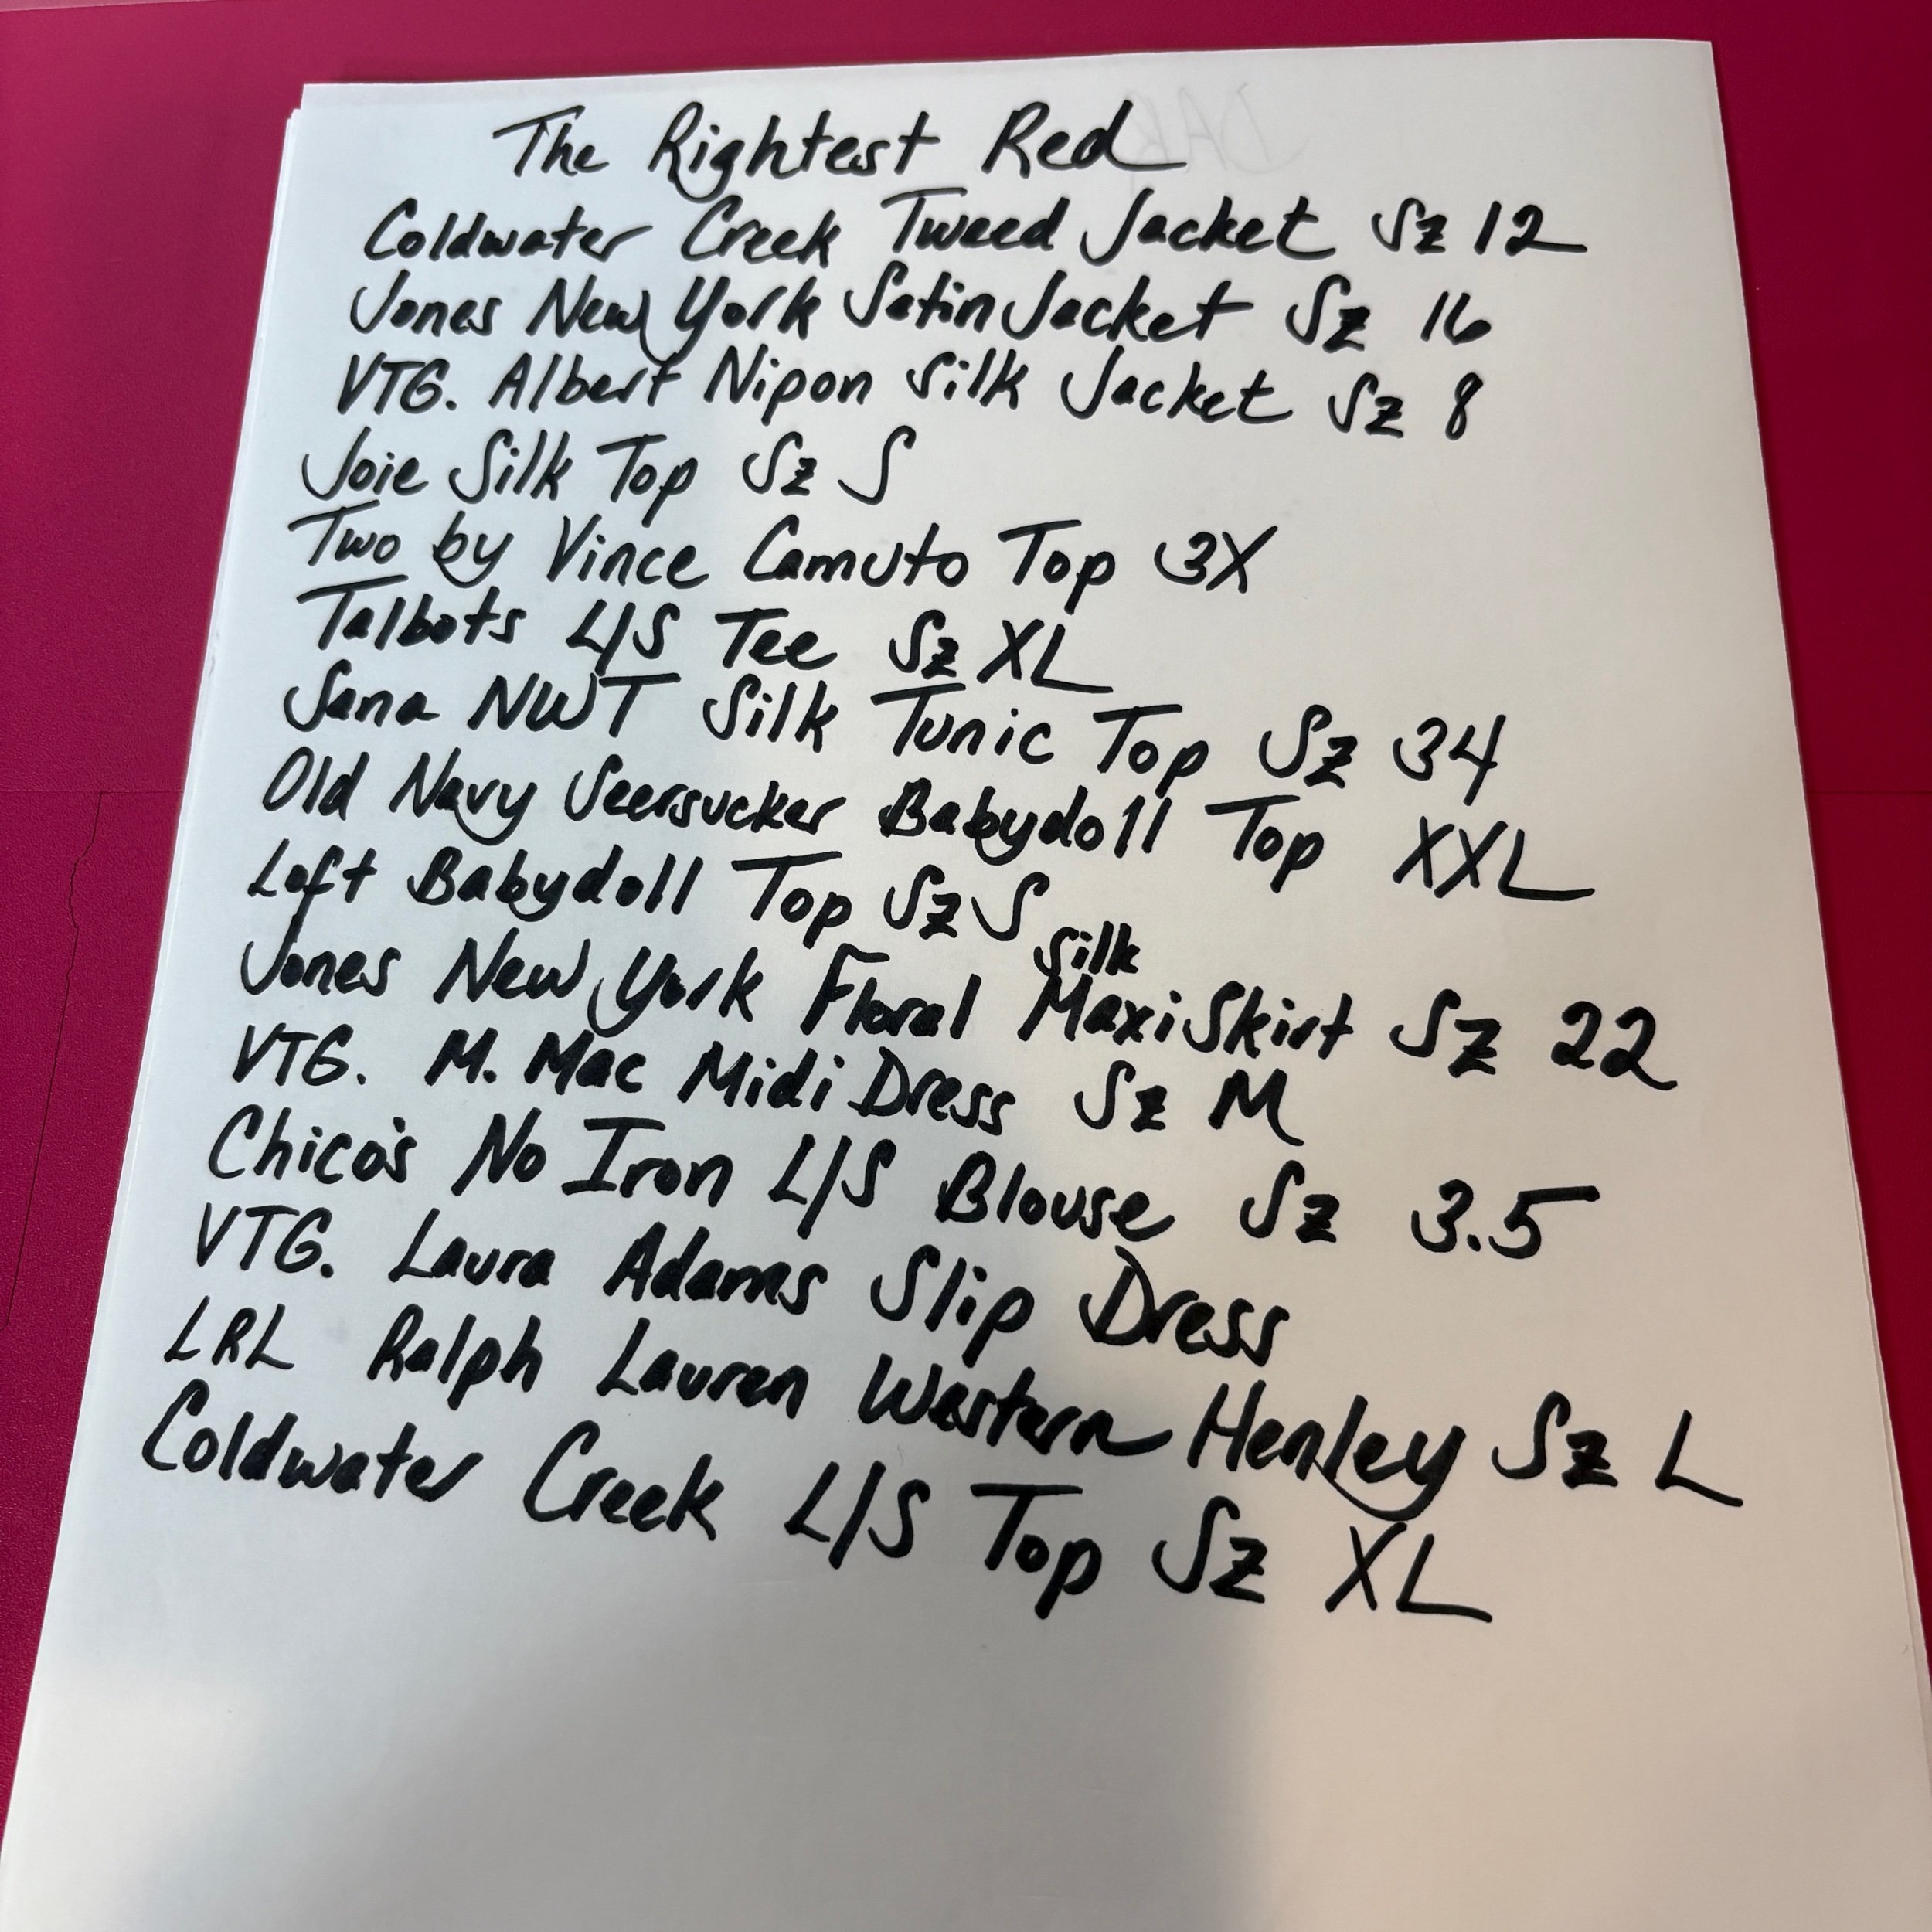 The Rightest Red
Coldwater Creek Tweed Jacket Sz 12
Jones New York Satin Jacket Sz 16
VTG. Albert Nipon Silk Jacket Sz 8
Joie Silk Top Sz S
Two by Vince Camuto Top 3X
Talbots L/S Tee Sz XL
Sana NWT Silk Tunic Top Sz 34
Old Navy Seersucker Babydoll Top XXL
Loft Babydoll Top Sz S
Silk
Jones New York Floral Maxi Skirt Sz 22
VTG. M. Mac Midi Dress Sz M
Chico's No Iron L/S Blouse Sz 3.5
VTG. Laura Adams Slip Dress
LRL Ralph Lauren Western Henley Sz L
Coldwater Creek L/S Top Sz XL